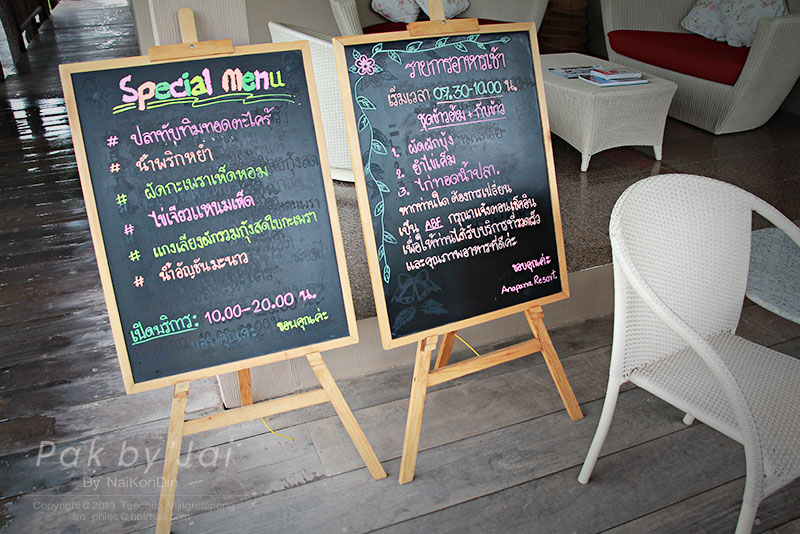 Special Menu
# ปลาทับทิมทอดตะไคร้
# น้ำพริกหยำ
# ผัดกะเพราเห็ดหอม
# ไข่เจียวแหนมเห็ด
# แกงเลียงผักรวมกุ้งสดใบกะเพรา
# น้ำอัญชันมะนาว
เปิดบริการ: 10.00-20.00 น.
ขอบคุณค่ะ
รายการอาหารเช้า
เริ่มเวลา 07.30-10.00 น.
ชุดข้าวต้ม + กับข้าว
1. ผัดผักบุ้ง
2. ยำไข่เค็ม
3. ไก่ทอดน้ำปลา.
หากท่านใด ต้องการเปลี่ยน
เป็น ABF กรุณาแจ้งตอนเช็คอิน
เพื่อให้ท่านได้รับบริการที่รวดเร็ว
และคุณภาพอาหารที่ดีค่ะ
ขอบคุณค่ะ
Anapana Resort.
Pak by Jai
By NaiKonDin
Copyright © 2015